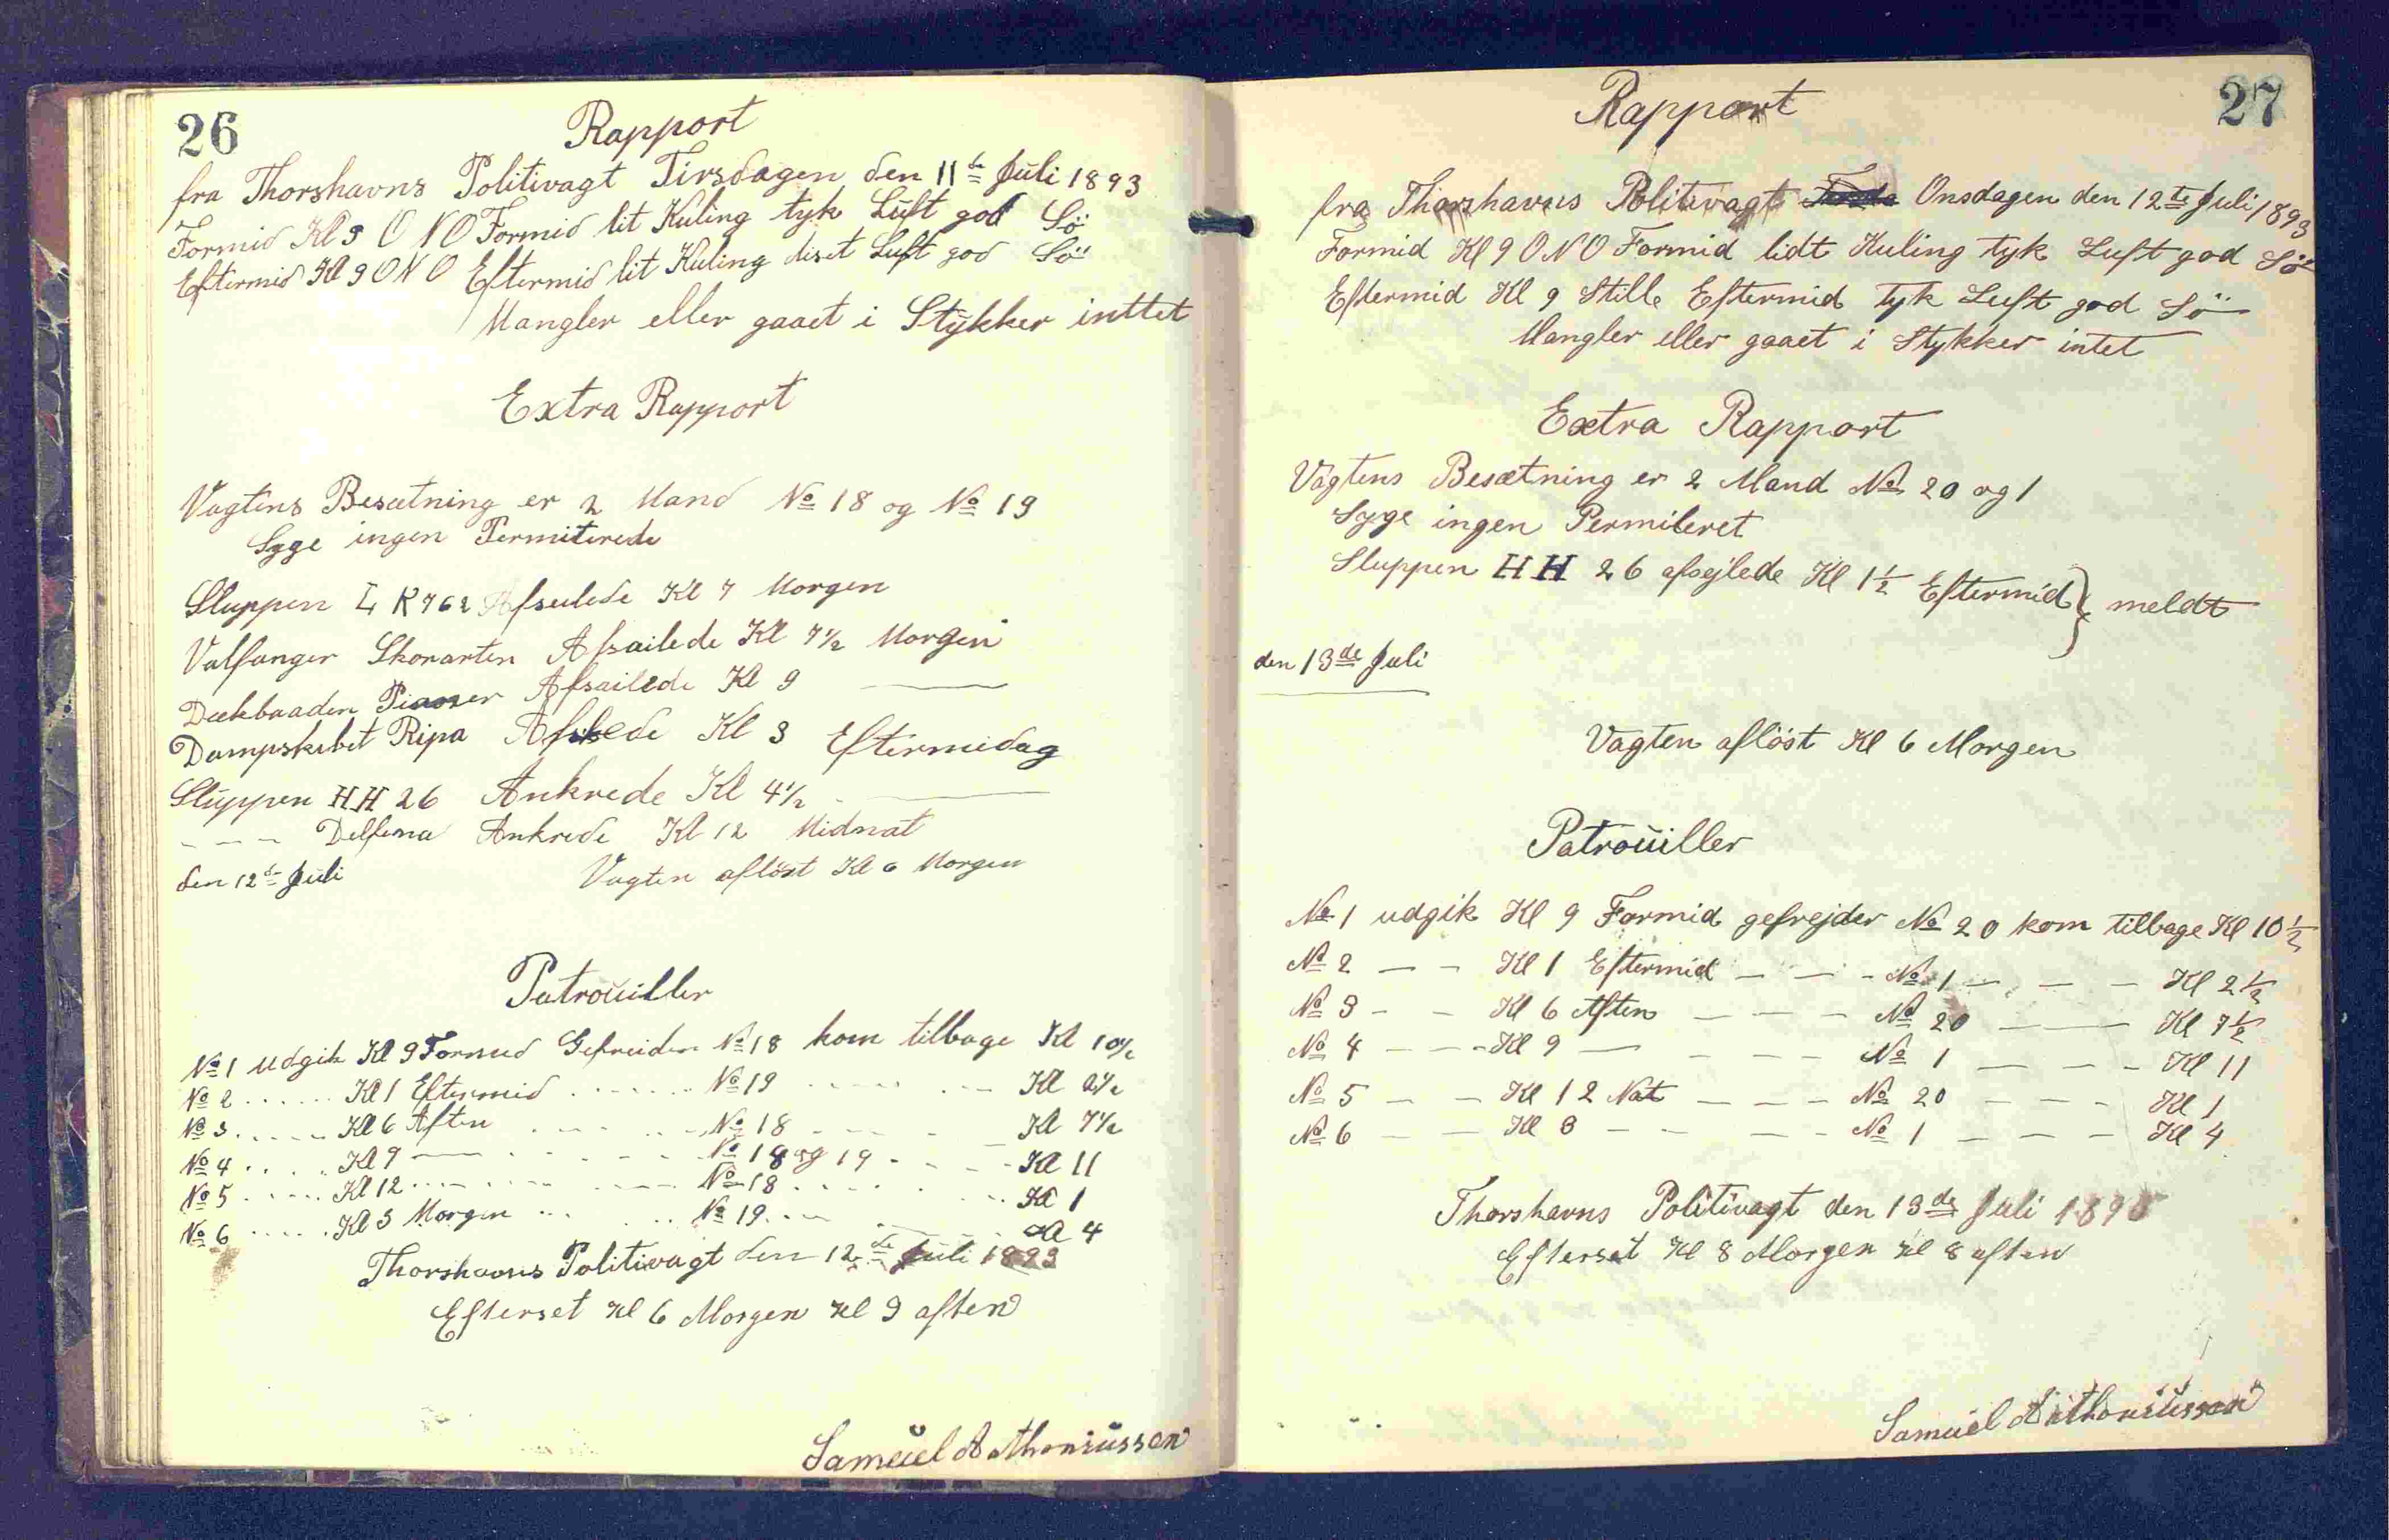 26
Rapport
fra Thorshavns Politivagt Tirsdagen den 11te Juli 1893
Formid Kl 9 ONO Formid lit Kuling tyk Luft god Sö
Eftermid Kl 9 ONO Eftermid lit Kuling diset Luft god Sö
Mangler eller gaaet i Stykker inttet
Extra Rapport
Vagtens Besætning er 2 Mand No 18 og No 19
Syge ingen Permiterede
Sluppen LK 762 Afseilede Kl 7 Morgen
Valfanger Skorarten Afsailede Kl 7 1/2 Morgen
Dækbaaden Afsailede Kl 9 —
Dampskibet Ripa Kl 3 Eftermidag
Sluppen HH 26 Ankrede Kl 4 1/2 —
- - - Delfina Ankrede Kl 12 Midnat
den 12te Juli Vagten aflöst Kl 6 Morgen
Patrouiller
No 1 udgik Kl 9 Formid Gefreider No 18 kom tilbage Kl 10 1/2
No 2 ...... Kl 1 Eftermid ...... No 19 ...... Kl 2 1/2
No 3 ...... Kl 6 Aften ...... No 18 ...... Kl 7 1/2
No 4 ..... Kl 9 — ...... No 18 og 19 - - - - Kl 11
No 5 ..... Kl 12 ...... No 18 ...... Kl 1
No 6 ..... Kl 3 Morgen ... No 19 ...... Kl 4
Thorshavns Politivagt den 12te Juli 1893
Efterset Kl 6 Morgen Kl 9 aften
Samuel Anthoniussen
27
Rapport
fra Thorshavns Politivagt Onsdagen den 12te Juli 1893
Formid Kl 9 ONO Formid lidt Kuling tyk Luft god Sö
Eftermid Kl 9 Stille Eftermid tyk Luft god Sö
Mangler eller gaaet i Stykker intet
Extra Rapport
Vagtens Besætning er 2 Mand No 20 og 1
Syge ingen Permiteret
Sluppen HH 26 afsejlede Kl 1 1/2 Eftermid } meldt
den 13de Juli
Vagten aflöst Kl 6 Morgen
Patrouiller
No 1 udgik Kl 9 Formid gefrejder No 20 kom tilbage Kl 10 1/2
No 2 — - Kl 1 Eftermid — - - - No 1 — - — - Kl 2 1/2
No 3 - - Kl 6 Aften — - - - No 20 — — Kl 7 1/2
No 4 - - - Kl 9 — - - - No 1 — - - - Kl 11
No 5 — - Kl 12 Nat — - - No 20 - - - - Kl 1
No 6 — - Kl 3 — - - - No 1 — - - Kl 4
Thorshavns Politivagt den 13de Juli 1893
Efterset Kl 8 Morgen Kl 8 aften
Samuel Anthoniussen